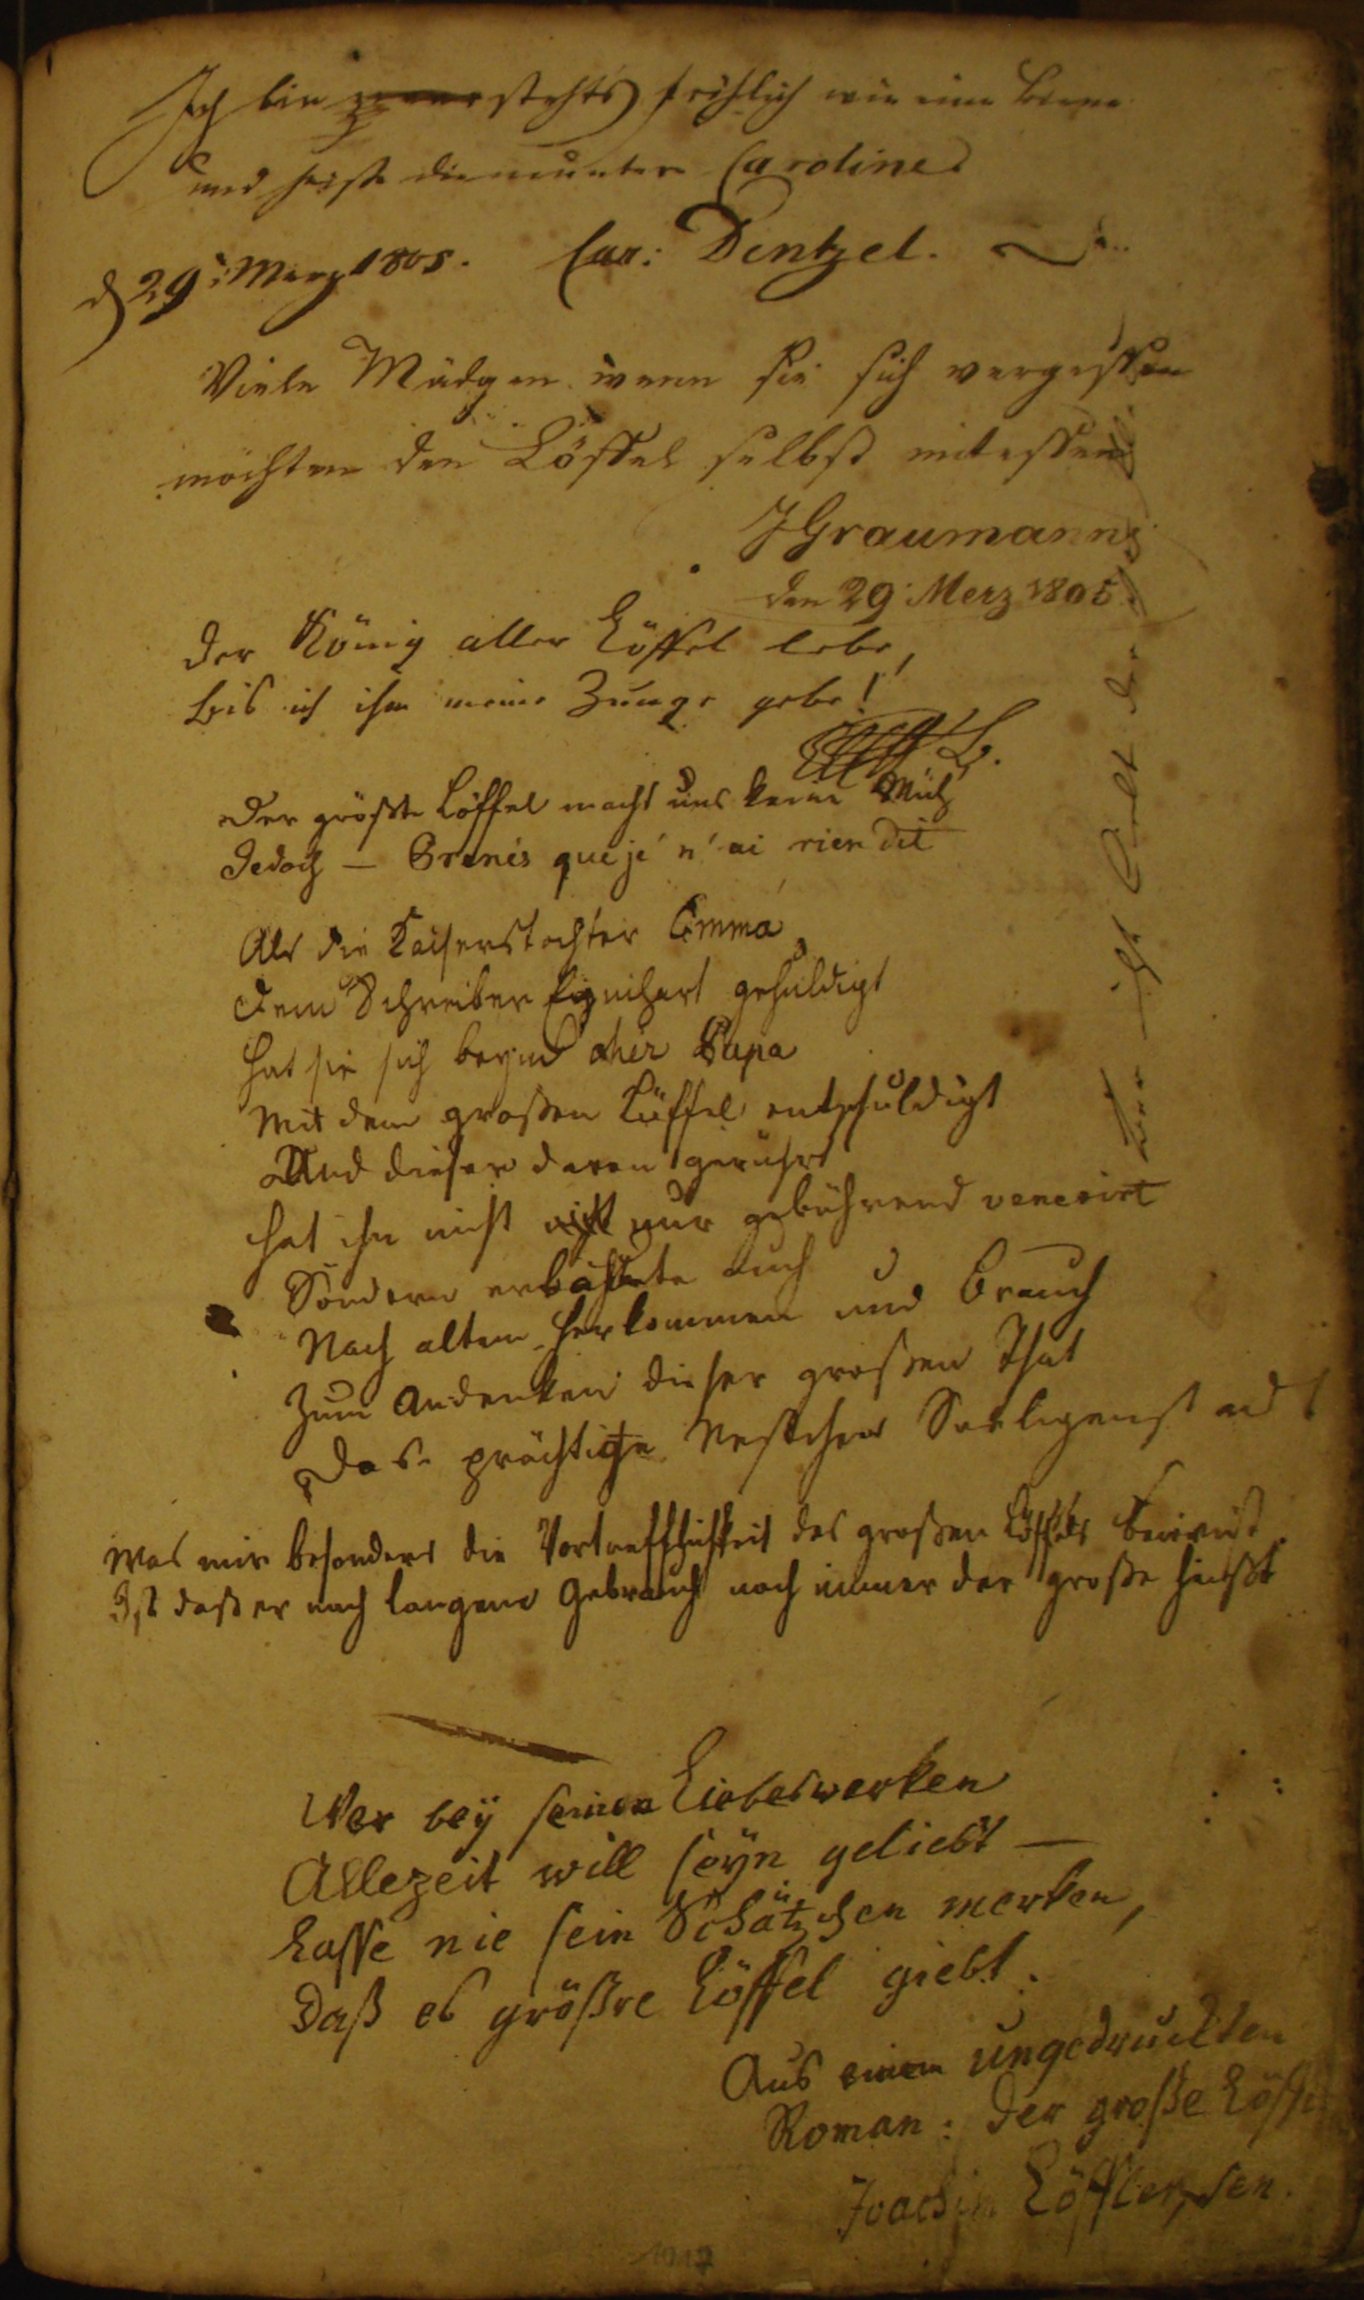 Ich bin stehts fröhlich wie eine Biene
und heiße die muntere Caroline
d 29 Merz 1805. Car: Dentzel.
Viele Mädgen wenn sie sich vergessen
möchten den Löffel selbst mitessen
JGraumann
den 29 Merz 1805
Der König aller Löffel lebe,
bis ich ihm meine Zunge gebe!
L.
Der größte Löffel macht uns keine Müh
Jedoch — que je n'ai rien dit
Als die Kaiserstochter Emma
Dem Schreiber Eginhart gehuldigt
Hat sie sich beym Papa
Mit dem großen Löffel entschuldigt
Und dieser davon gerührt
hat ihn nicht nur gebührend venerirt
Sondern erbaute auch
Nach altem Herkommen und Brauch
Zum Andenken dieser großen That
Das prächtige Nestchen Seeligenstadt
Was mir besonders die Vortrefflichkeit des großen Löffels beweist
Ist daß er nach langem Gebrauch noch immer der große heißt
Wer bey seinen Liebeswerken
Allezeit will seyn geliebt —
Lasse nie sein Schätzchen merken,
Daß es größre Löffel giebt.
Aus einem ungedruckten
Roman: Der große Löffel
Joachim Löffler, sen.